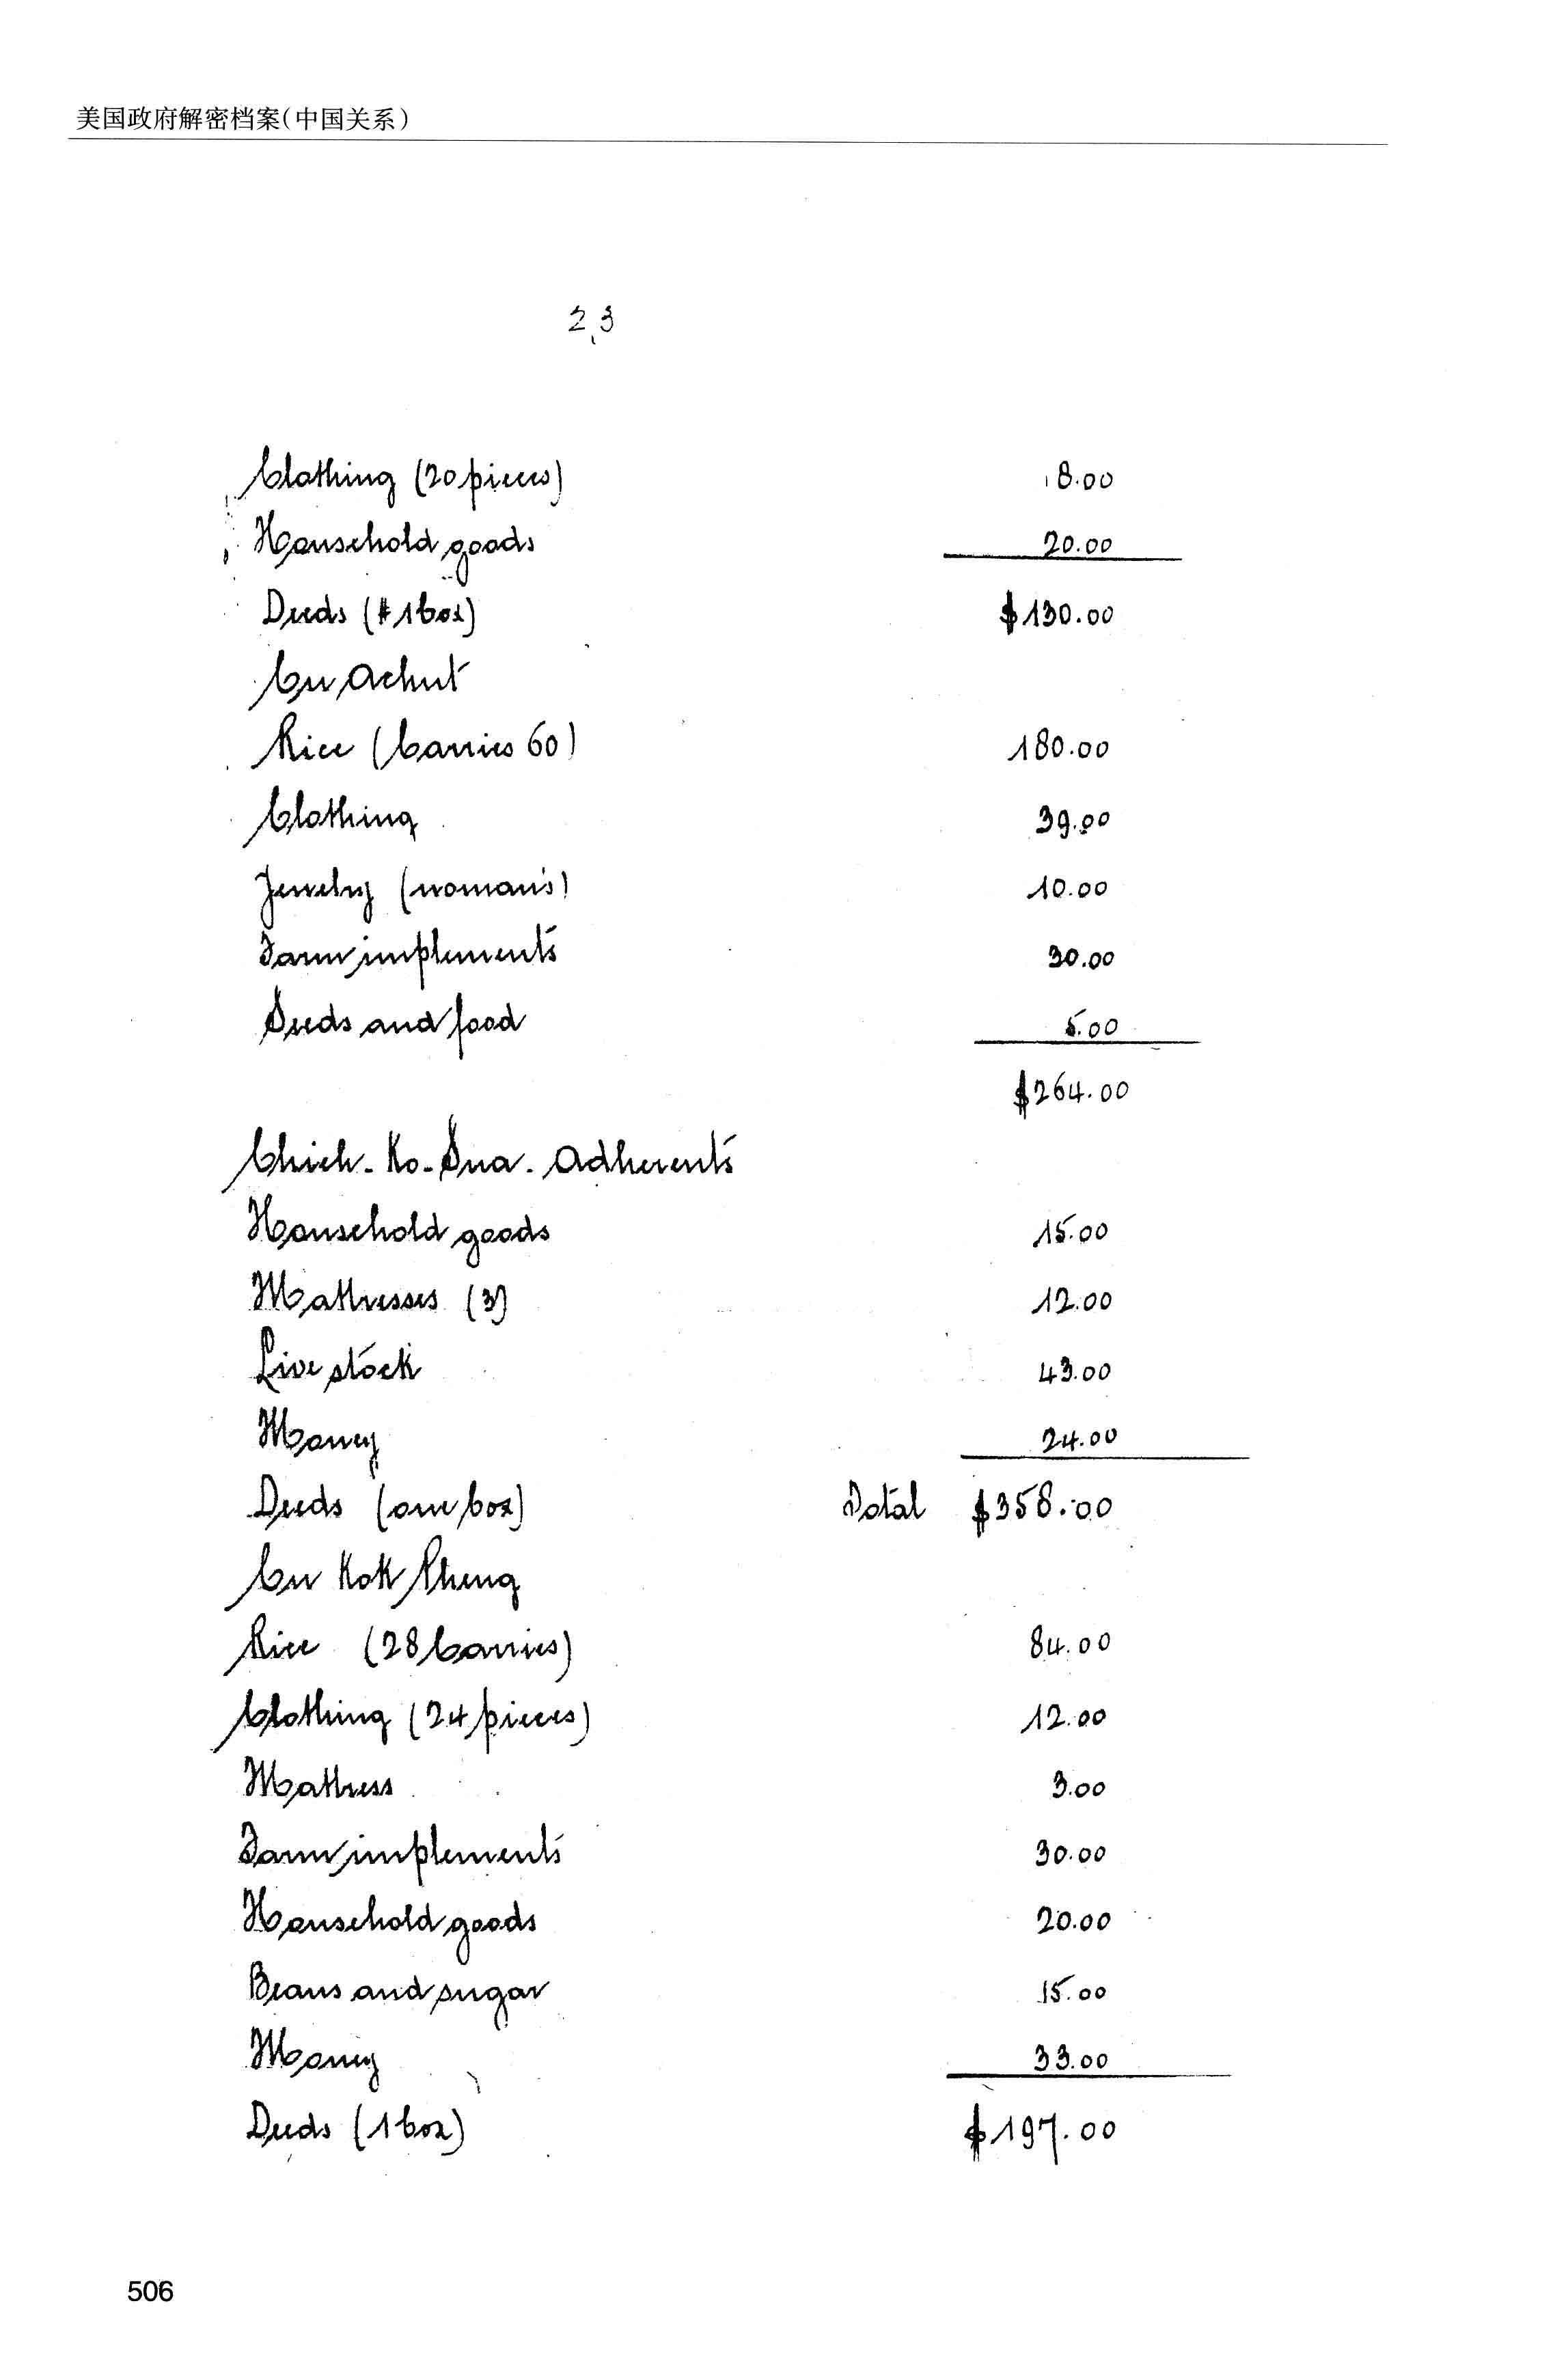 美国政府解密档案(中国关系)
2,3
Clothing (20 pieces) 8.00
Household goods 20.00
Deeds (#1 box) $130.00
Cu Achut
Rice (Carries 60) 180.00
Clothing 39.00
Jewelry (woman's) 10.00
Farm implements 30.00
Seeds and food 5.00
$264.00
Chieh-Ko-Sua-Adherents
Household goods 15.00
Mattresses (3) 12.00
Live stock 43.00
Money 24.00
Deeds (one box) Total $358.00
Cu Kok Pheng
Rice (28 Carries) 84.00
Clothing (24 pieces) 12.00
Mattress 3.00
Farm implements 30.00
Household goods 20.00
Beans and sugar 15.00
Money 33.00
Deeds (1 box) $197.00
506